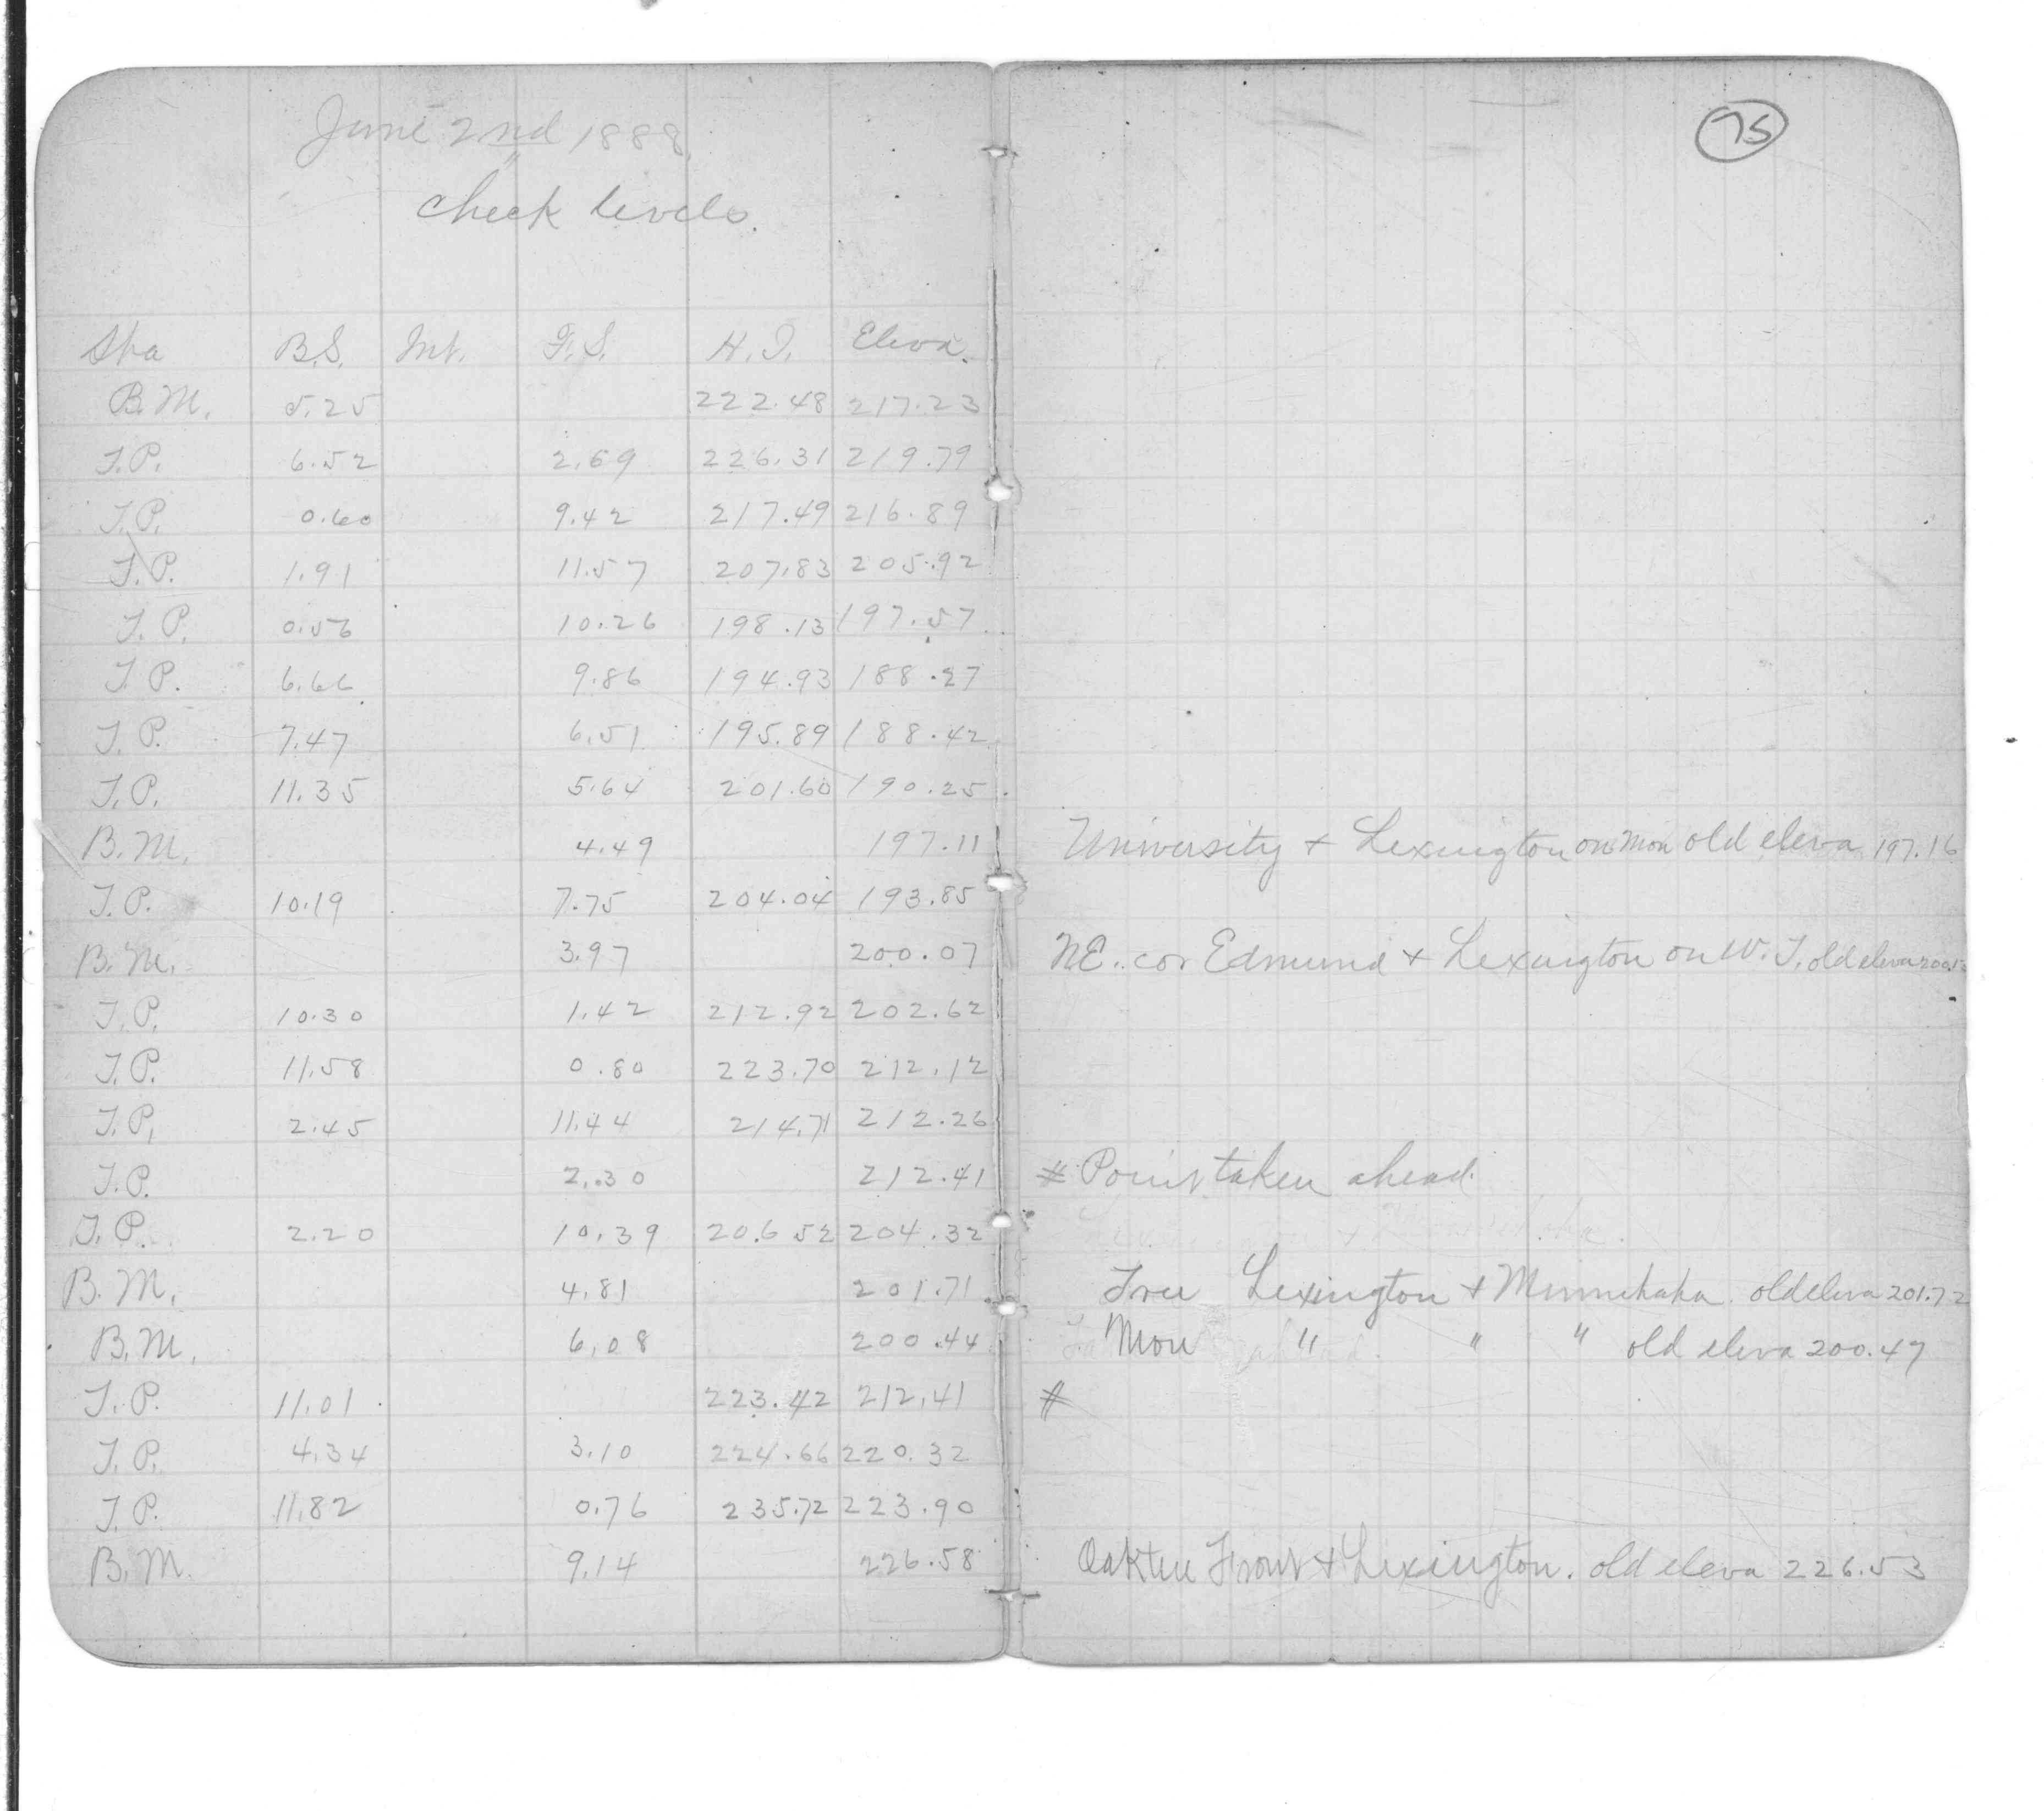 June 2nd 1888.
check levels.
Sta B.S. Int. F.S. H.I. Eleva.
B.M. 5.25 222.48 217.23
T.P. 6.52 2.69 226.31 219.79
T.P. 0.60 9.42 217.49 216.89
T.P. 1.91 11.57 207.83 205.92
T.P. 0.56 10.26 198.13 197.57
T.P. 6.66 9.86 194.93 188.27
T.P. 7.47 6.51 195.89 188.42
T.P. 11.35 5.64 201.60 190.25
B.M. 4.49 197.11
T.P. 10.19 7.75 204.04 193.85
B.M. 3.97 200.07
T.P. 10.30 1.42 212.92 202.62
T.P. 11.58 0.80 223.70 212.12
T.P. 2.45 11.44 214.71 212.26
T.P. 2.30 212.41
T.P. 2.20 10.39 206.52 204.32
B.M. 4.81 201.71
B.M. 6.08 200.44
T.P. 11.01 223.42 212.41
T.P. 4.34 3.10 224.66 220.32
T.P. 11.82 0.76 235.72 223.90
B.M. 9.14 226.58
75
University + Lexington on Mon old eleva 197.16
NE. cor Edmund + Lexington on W.T. old eleva
# Point taken ahead.
Tree Lexington + Minnehaha. old eleva 201.72
Mon " " " old eleva 200.47
#
Oak tree Front + Lexington. old eleva 226.53